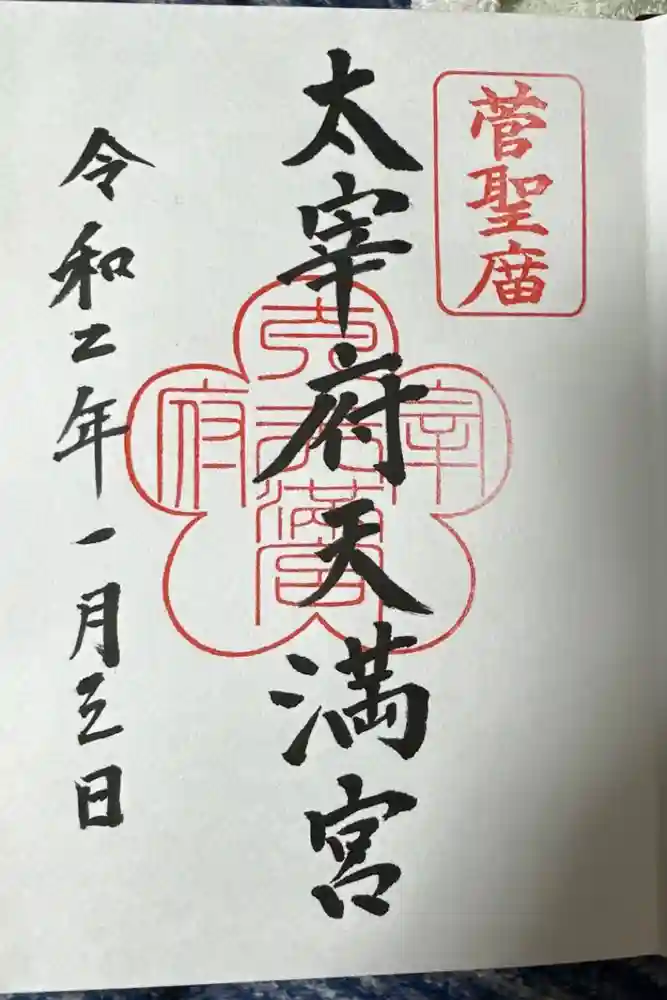 菅聖廟
太宰府天満宮
太宰府天満宮
令和二年一月三日